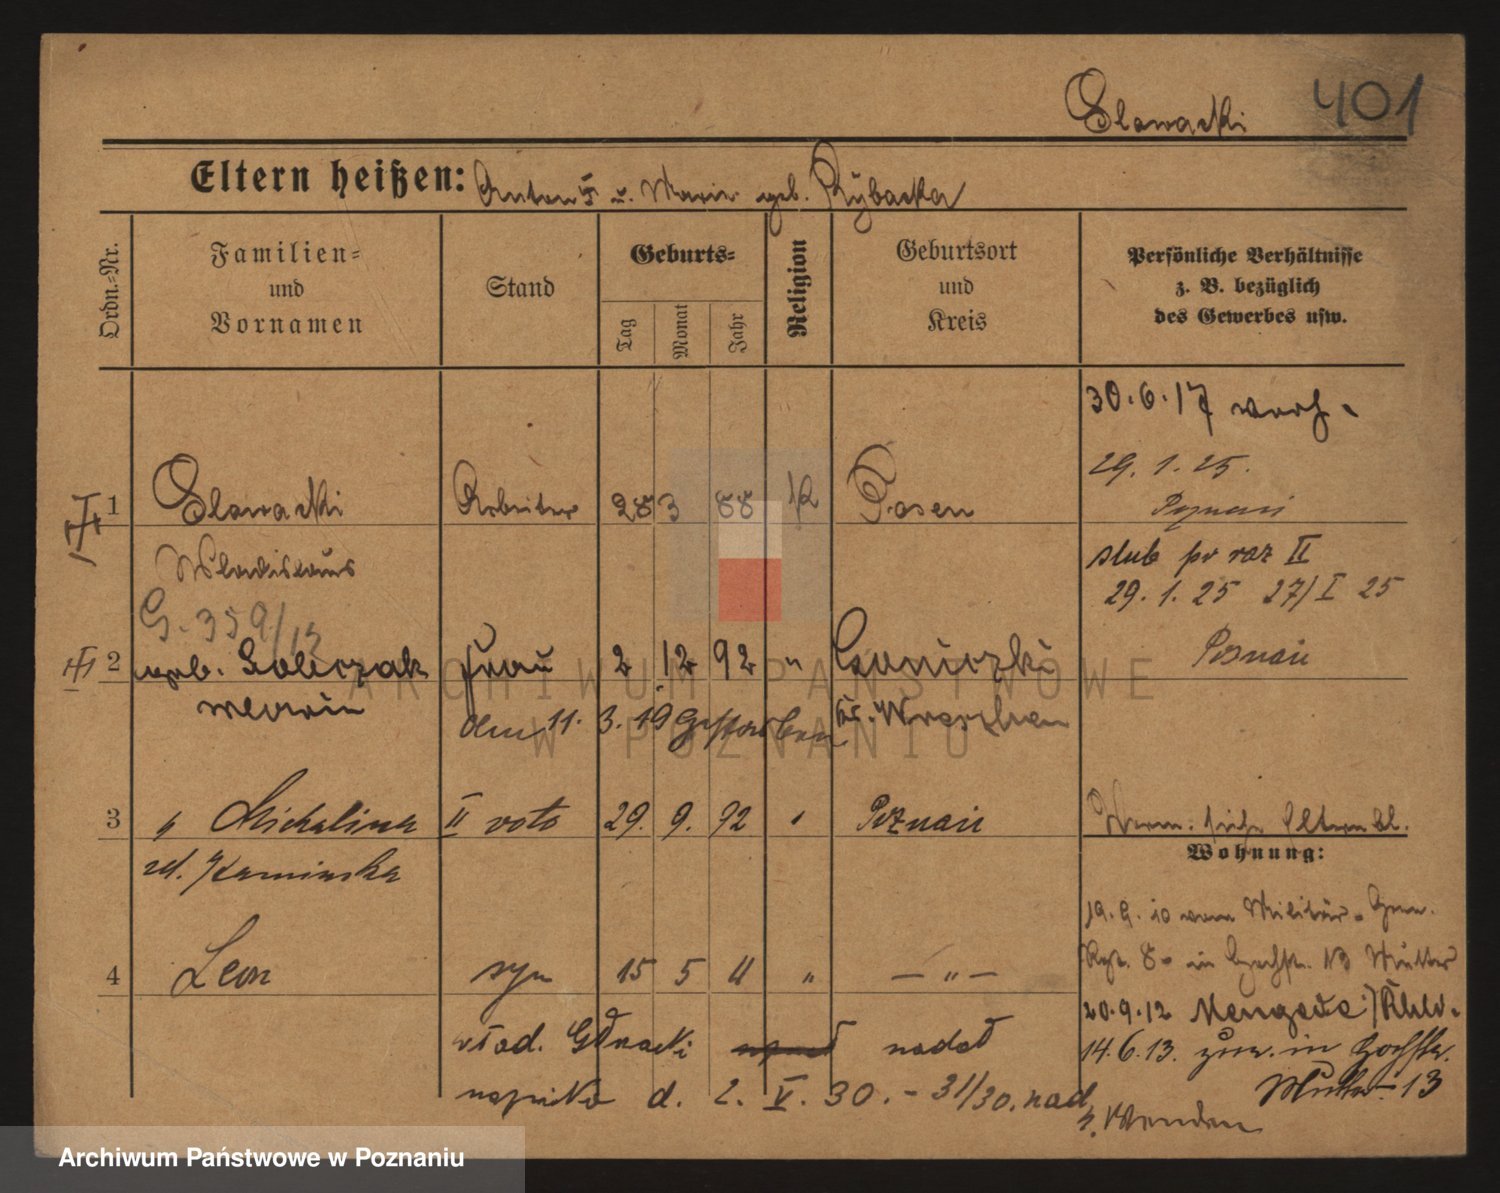 401
Slowacki
Eltern heißen: Anton † u. Marie geb. Rybacka
Ordn.-Nr.
Familien-
und
Vornamen
Stand
Geburts-
Tag
Monat
Jahr
Religion
Geburtsort
und
Kreis
Persönliche Verhältnisse
z. B. bezüglich
des Gewerbes usw.
30.6.17 verh.
29. 1. 25.
1 Slowacki Arbeiter 28 3 88 K Posen Poznań
Wladislaus
ślub po raz II
29. 1. 25 27/I 25
G. 359/13
2 geb. Frau 2 12 92 " Poznań
Maria
den 11. 3. 19 Gestorben Kr. Wreschen
3 " Michalina II voto 29. 9. 92 " Poznań
zd. Kaminska
Wohnung:
4 Leon syn 15 5 11 " — " —
19. 9. 10 vom Militär-
in Hochstr. 13 Mutter
20.9.12 Mengede
14.6.13. zur. in Hochstr.
Mutter 13
nadał
d. 2. V. 30. - 31/30. nad
Archiwum Państwowe w Poznaniu
ARCHIWUM PAŃSTWOWE
W POZNANIU